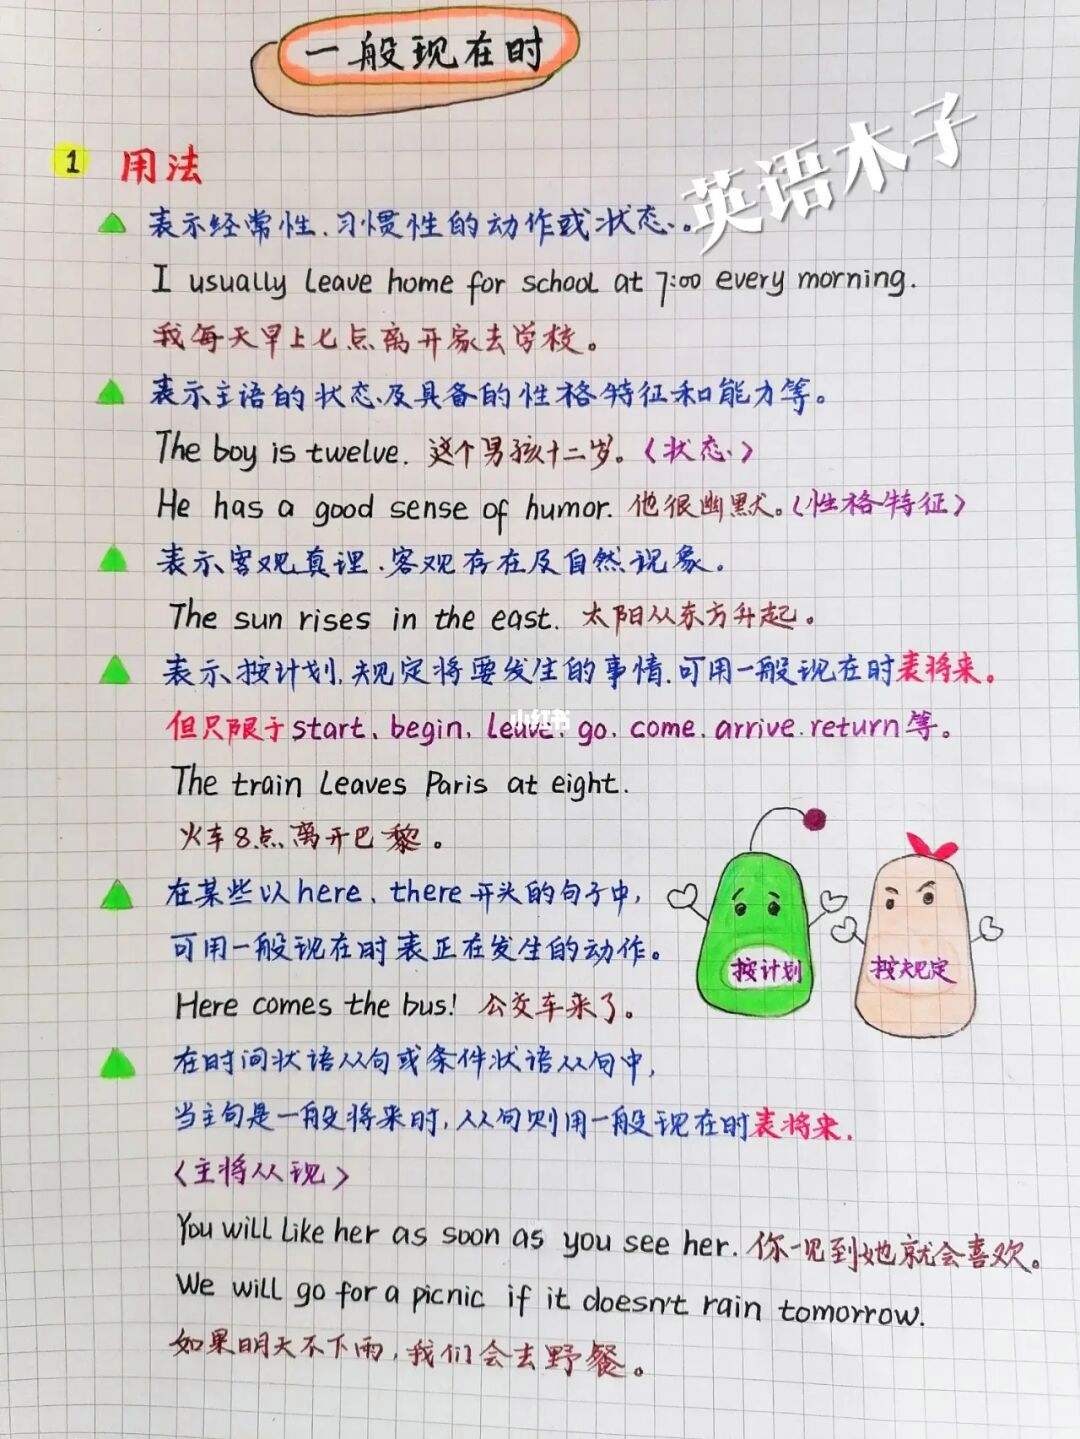 一般现在时
英语木子
1 用法
表示经常性、习惯性的动作或状态。
I usually leave home for school at 7:00 every morning.
我每天早上七点离开家去学校。
表示主语的状态及具备的性格特征和能力等。
The boy is twelve. 这个男孩十二岁。〈状态〉
He has a good sense of humor. 他很幽默。〈性格特征〉
表示客观真理、客观存在及自然现象。
The sun rises in the east. 太阳从东方升起。
表示按计划、规定将要发生的事情,可用一般现在时表将来。
但只限于start、begin、leave、go、come、arrive、return等。
小红书
The train leaves Paris at eight.
火车8点离开巴黎。
在某些以here、there开头的句子中,
可用一般现在时表正在发生的动作。
按计划
按规定
Here comes the bus! 公交车来了。
在时间状语从句或条件状语从句中,
当主句是一般将来时,从句则用一般现在时表将来.
〈主将从现〉
You will like her as soon as you see her. 你一见到她就会喜欢。
We will go for a picnic if it doesn't rain tomorrow.
如果明天不下雨,我们会去野餐。